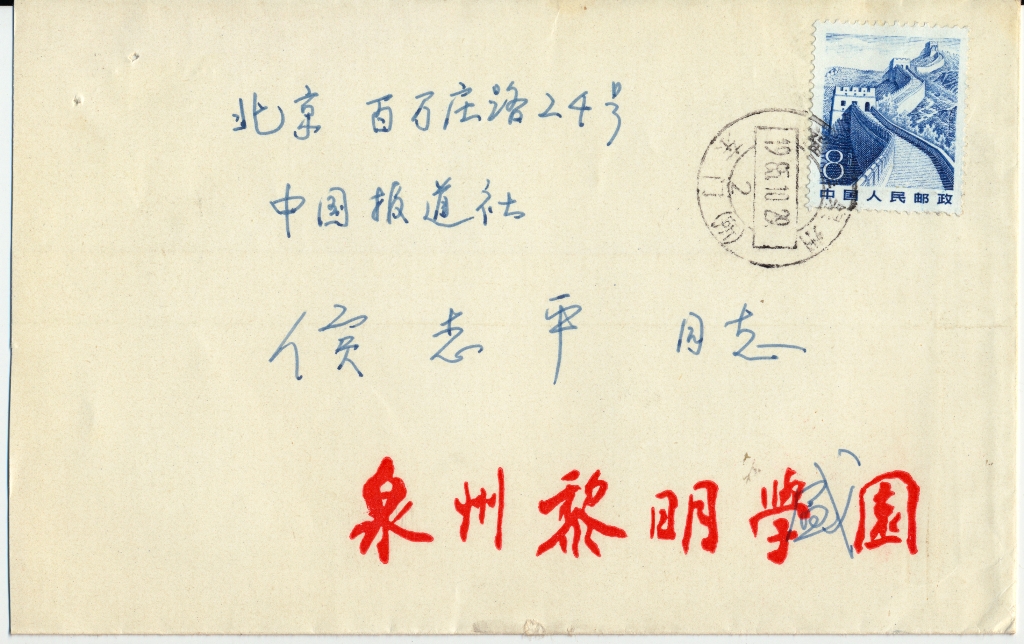 北京 百万庄路24号
中国报道社
侯志平 同志
8
中国人民邮政
1985.10.28
2
泉州黎明学園